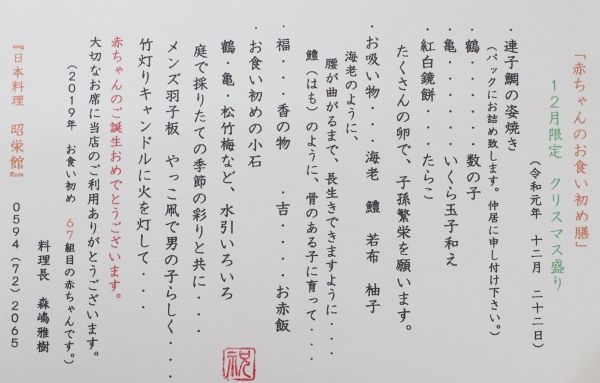 「赤ちゃんのお食い初め膳」
12月限定 クリスマス盛り
(令和元年 十二月 二十二日)
・連子鯛の姿焼き
(パックにお詰め致します。仲居に申し付け下さい。)
・鶴・・・・・数の子
・亀・・・・・いくら玉子和え
・紅白鏡餅・・・・たらこ
たくさんの卵で、子孫繁栄を願います。
・お吸い物・・・・海老 鱧 若布 柚子
海老のように、
腰が曲がるまで、長生きできますように・・・
鱧(はも)のように、骨のある子に育って・・・・
・福・・・香の物 ・吉・・・お赤飯
・お食い初めの小石
鶴・亀・松竹梅など、水引いろいろ
庭で採りたての季節の彩りと共に・・・
メンズ羽子板 やっこ凧で男の子らしく・・・・
竹灯りキャンドルに火を灯して・・・
赤ちゃんのご誕生おめでとうございます。
大切なお席に当店のご利用ありがとうございます。
(2019年 お食い初め 67組目の赤ちゃんです。)
料理長 森嶋雅樹
『日本料理 昭栄館』 0594(72)2065
祝